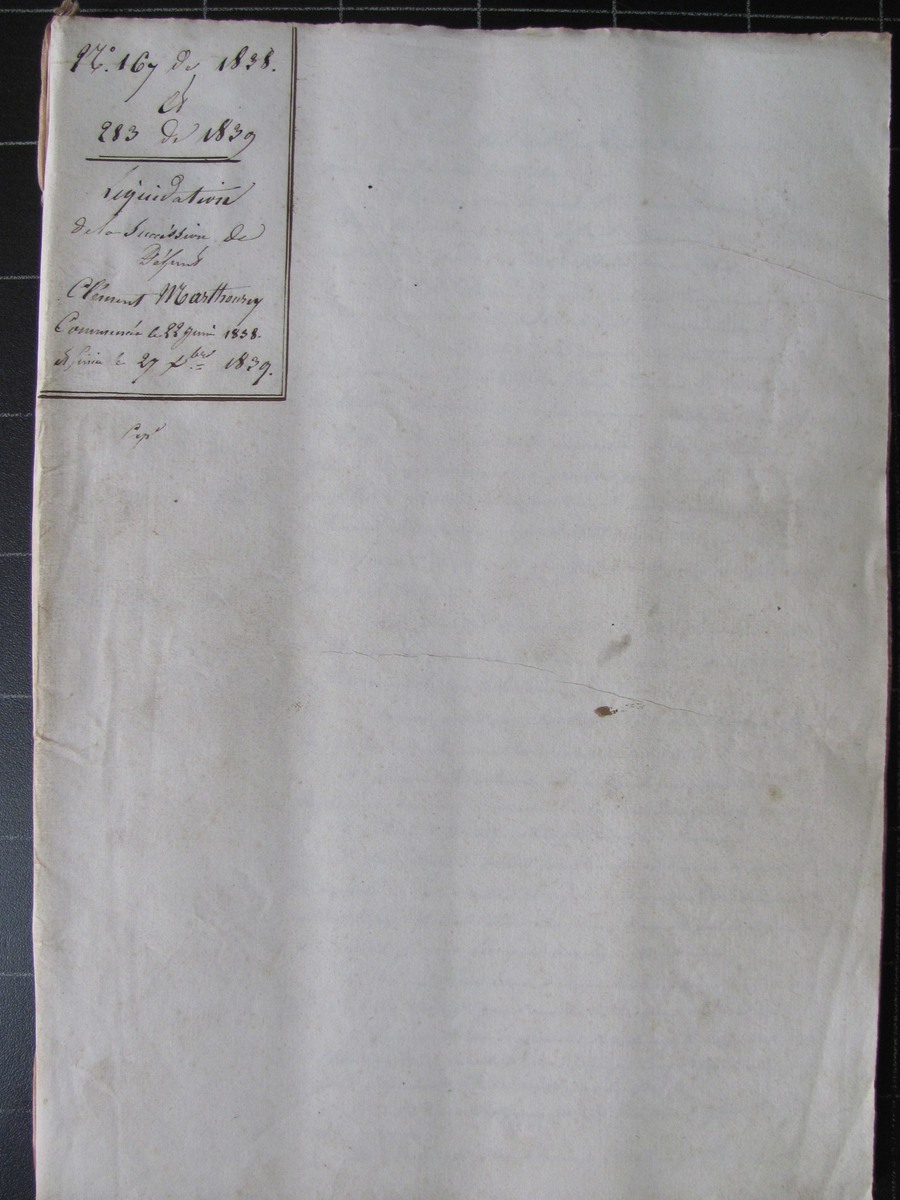 N.º 167 de 1838.
et
283 de 1839
Liquidation
de la Succéssion de
Défunt
Clément
Commencée le 22 Juin 1838.
et finie le 27 Xbre 1839.